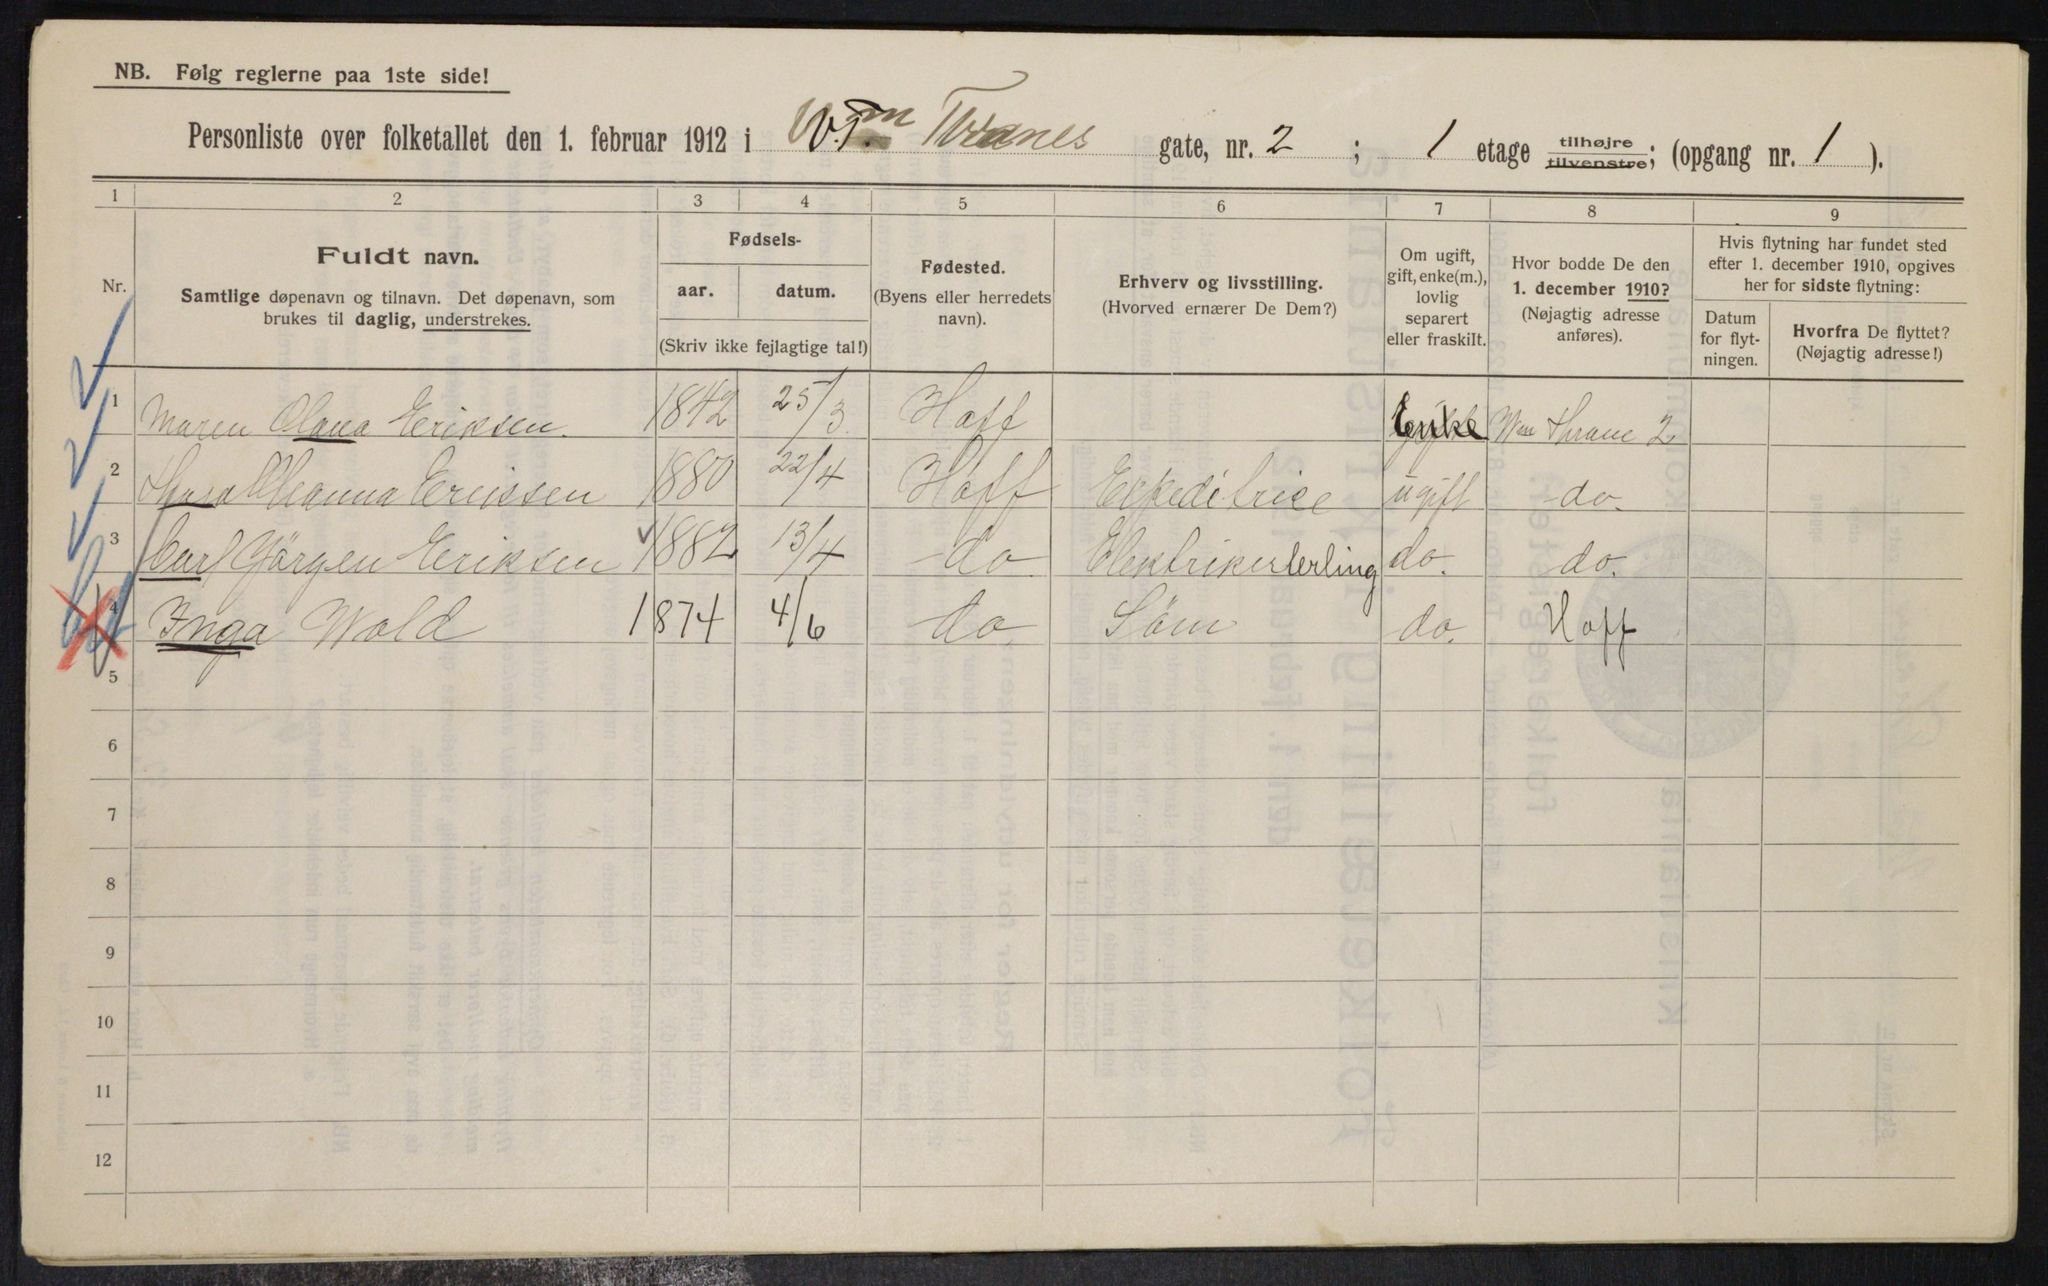 NB. Følg reglerne paa 1ste side!
Personliste over folketallet den 1. februar 1912 i Wm Thranes gate, nr. 2 ; 1 etage tilhøjre tilvenstre; (opgang nr. 1 ).
1 2 3 4 5 6 7 8 9
Nr.
Fuldt navn.
Samtlige døpenavn og tilnavn. Det døpenavn, som
brukes til daglig, understrekes.
Fødsels-
aar. datum.
(Skriv ikke fejlagtige tal!)
Fødested.
(Byens eller herredets
navn).
Erhverv og livsstilling.
(Hvorved ernærer De Dem?)
Om ugift,
gift, enke(m.),
lovlig
separert
eller fraskilt.
Hvor bodde De den
1. december 1910?
(Nøjagtig adresse
anføres).
Hvis flytning har fundet sted
efter 1. december 1910, opgives
her for sidste flytning:
Datum
for flyt-
ningen.
Hvorfra De flyttet?
(Nøjagtig adresse!)
1 Maren Olava Eriksen. 1842 25/3 Hoff Enke Wm Thrane 2
2 Eriksen 1880 22/4 Hoff Expeditrice ugift do.
3 Carl Jörgen Eriksen 1882 13/4 do Elektrikerlerling do. do.
4 Inga Wold 1874 4/6 do Søm do. Hoff
5
6
7
8
9
10
11
12